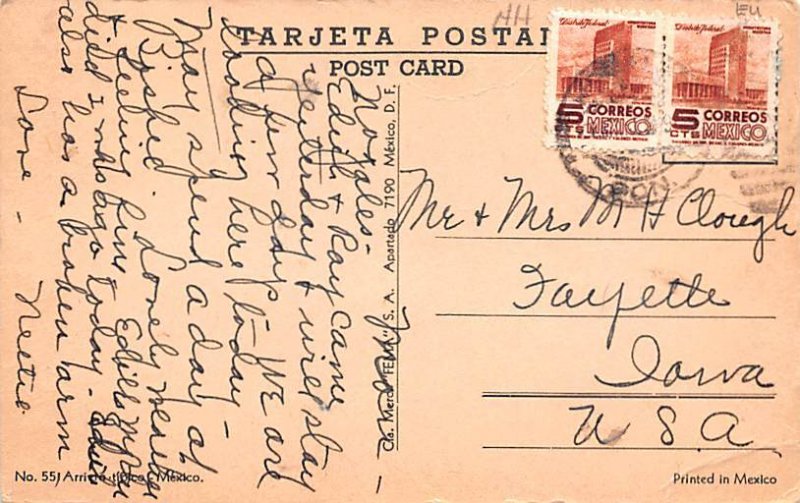 TARJETA POSTAL
POST CARD
HH
EU
Distrito Federal
Distrito Federal
5 CTS CORREOS MEXICO
5 CTS CORREOS MEXICO
Nogales-
Mon-
Edith & Ray came
yesterday & will stay
a few days - We are
Looking here today -
May spend a day at
Bisbee. Lovely weather
& feeling fine
did
also has a broken arm
Love - Nettie
Mr & Mrs M H Clough
Fayette
Iowa
U S A
Cia. Merc. "FEMA" S. A. Apartado 7190 México, D. F.
No. 55 México.
Printed in Mexico